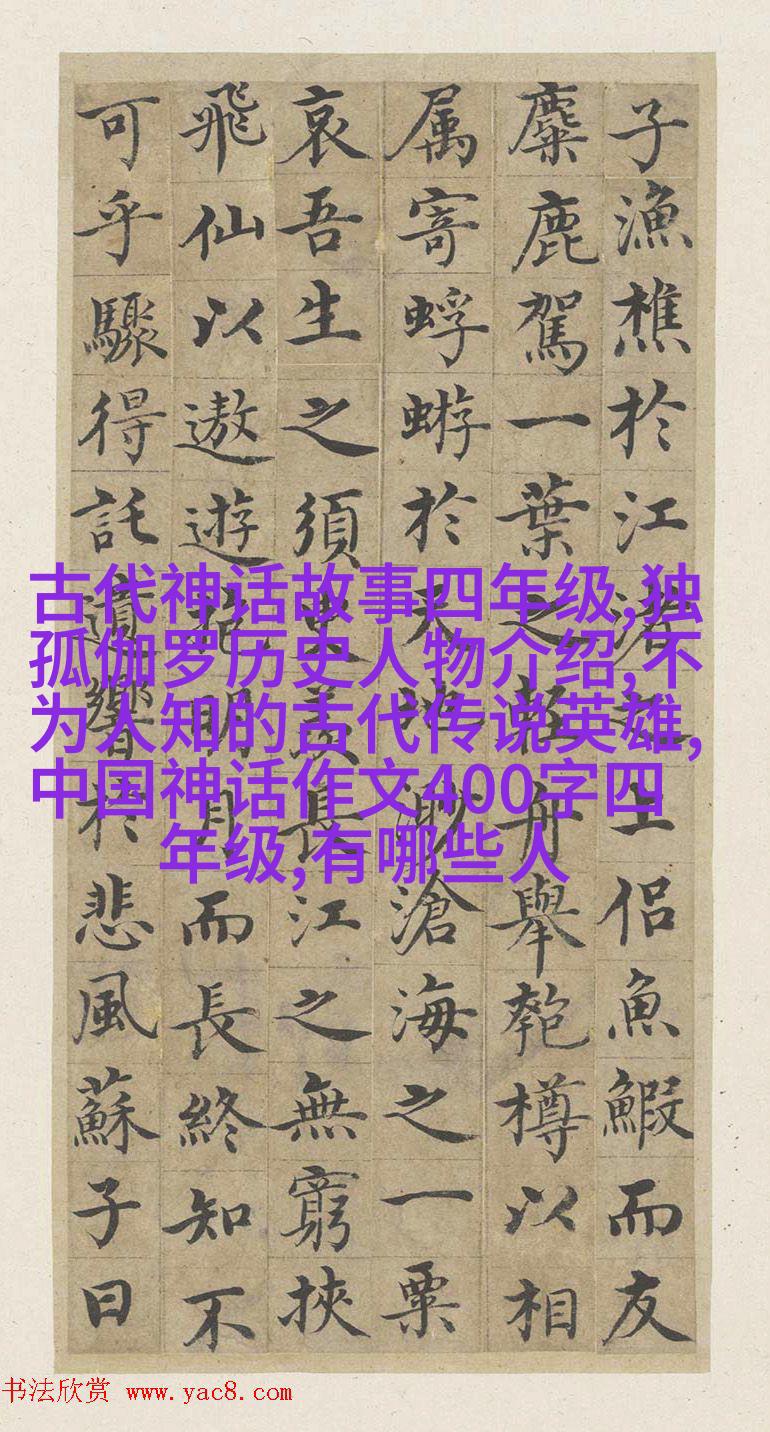 子漁樵於江渚之上侶魚鰕而友
麋鹿駕一葉之輕舟舉匏樽以相
属寄蜉蝣於天地渺滄海之一粟
哀吾生之須臾羨長江之無窮挾
飛仙以遨遊抱明月而長終知不
可乎驟得託遺響於悲風蘇子曰
古代神话故事四年级,独
孤伽罗历史人物介绍,不
为人知的古代传说英雄,
中国神话作文400字四
年级,有哪些人
书法欣赏 www.yac8.com